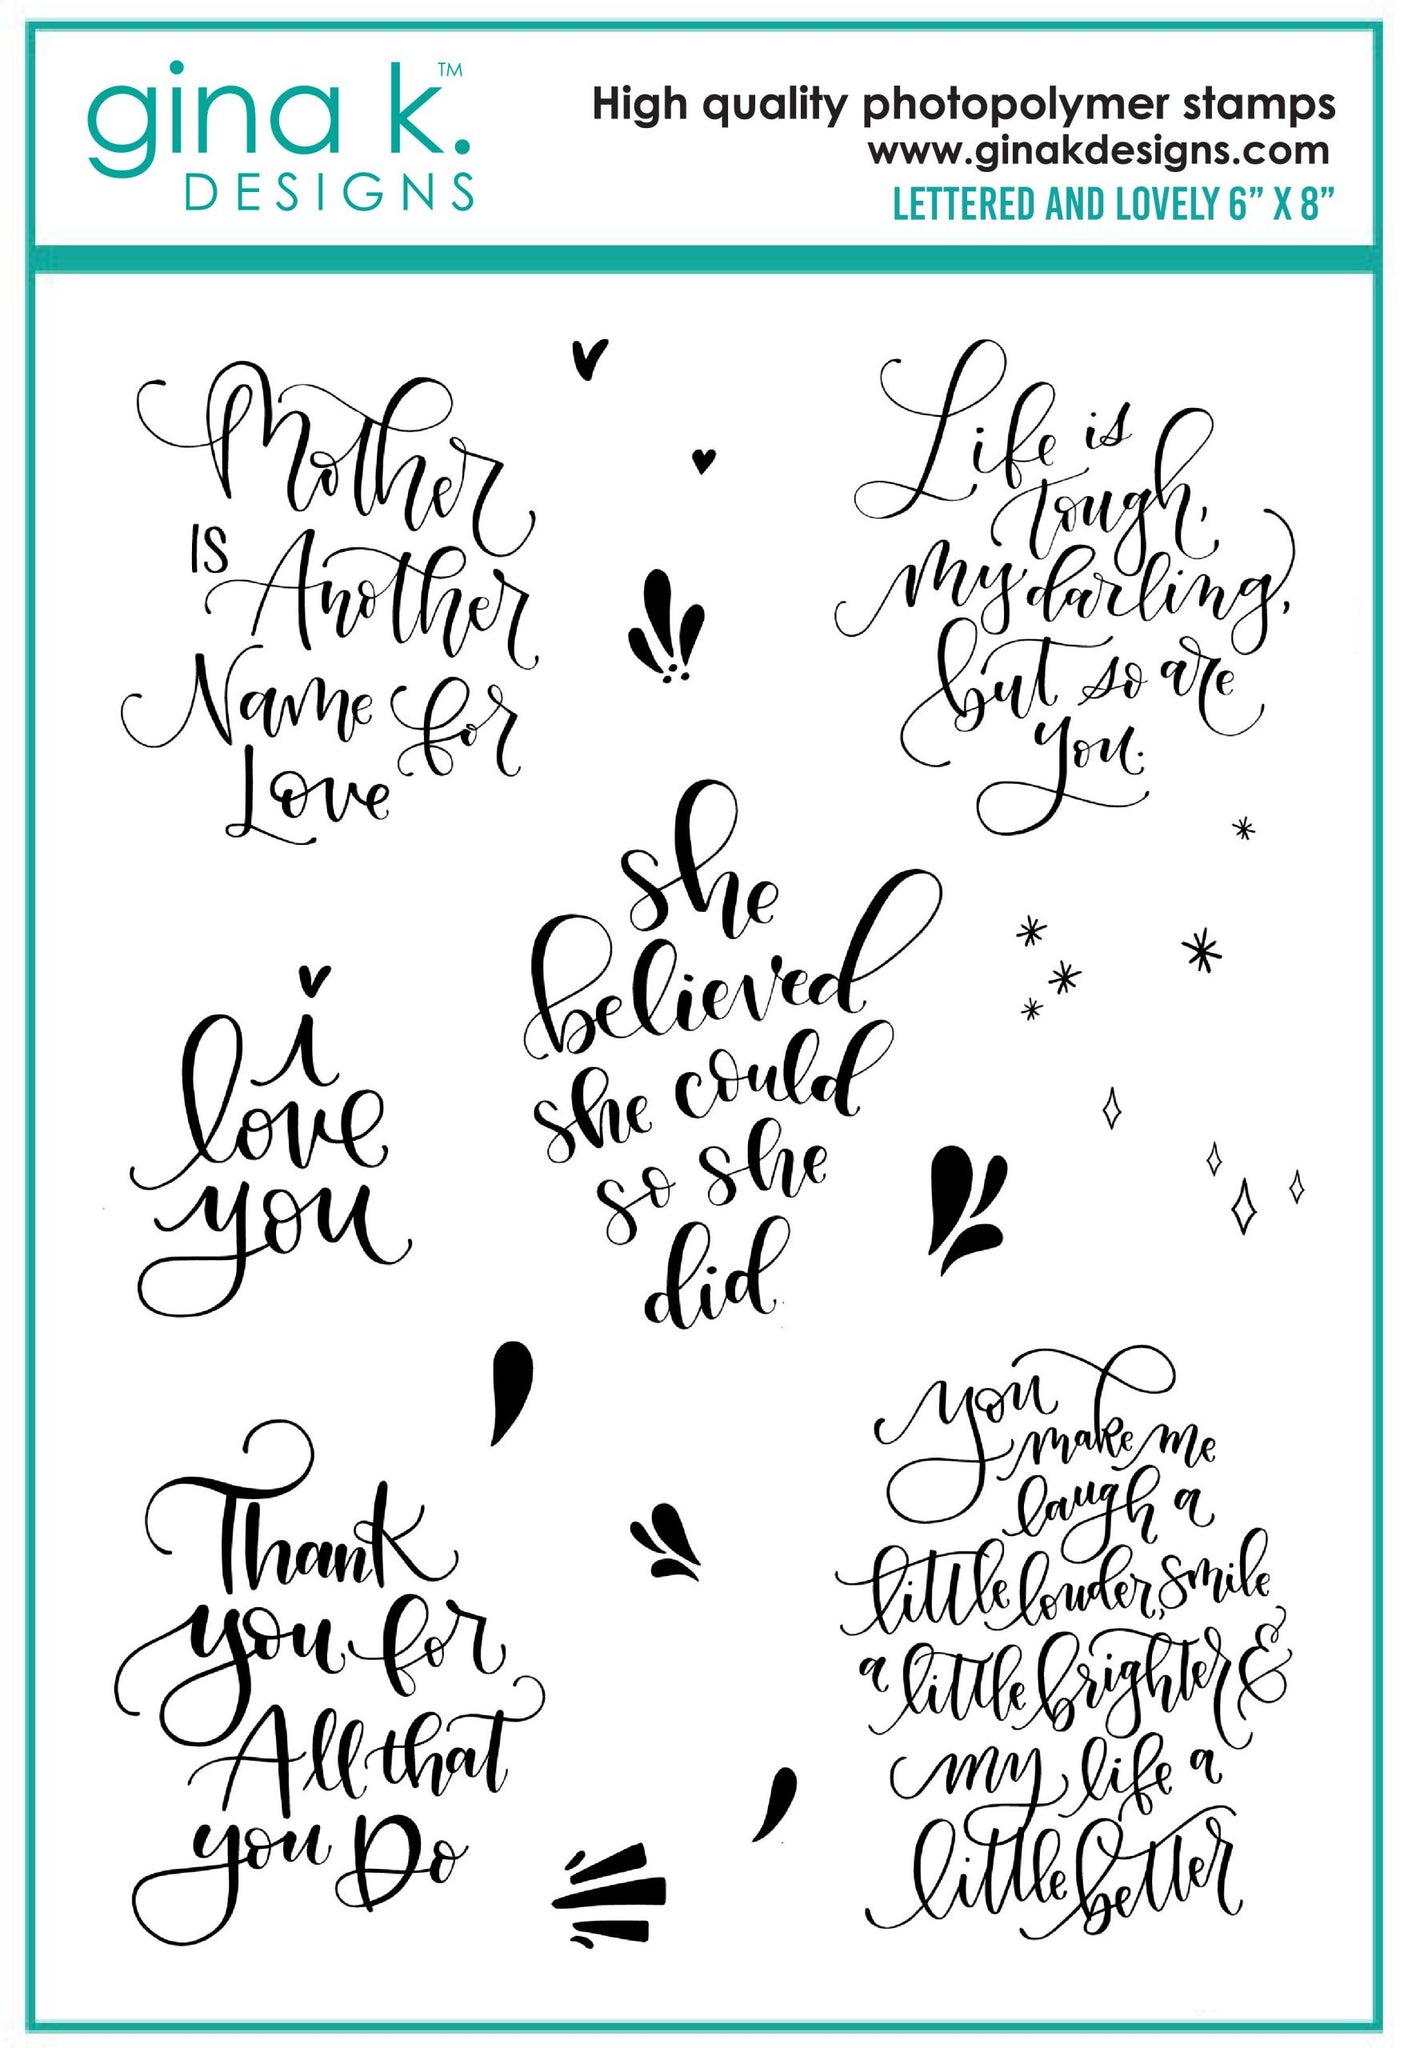 gina k.™
DESIGNS
High quality photopolymer stamps
www.ginakdesigns.com
LETTERED AND LOVELY 6” X 8”
Mother
IS
Another
Name for
Love
Life is
tough,
my darling,
but so are
you.
she
believed
she could
so she
did
i
love
you
Thank
you for
All that
you Do
you
make me
laugh a
little louder, smile
a little brighter &
my life a
little better